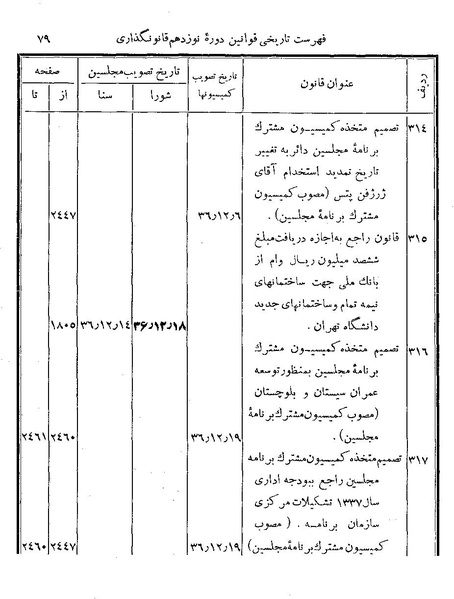 فهرست تاریخی قوانین دورهٔ نوزدهم قانونگذاری ۷۹
ردیف عنوان قانون تاریخ تصویب کمیسیونها تاریخ تصویب مجلسین صفحه
شورا سنا از تا
۳۱۴ تصمیم متخذه کمیسیون مشترك
برنامهٔ مجلسین دائر به تغییر
تاریخ تمدید استخدام آقای
ژرژفن پتس (مصوب کمیسیون
مشترك برنامهٔ مجلسین). ۳۶٫۱۲٫۶ ۲۴۴۷
۳۱۵ قانون راجع به اجازه دریافت مبلغ
ششصد میلیون ریال وام از
بانك ملی جهت ساختمانهای
نیمه تمام و ساختمانهای جدید
دانشگاه تهران. ۳۶٫۱۲٫۱۸ ۳۶٫۱۲٫۱۴ ۱۸۰۵
۳۱۶ تصمیم متخذه کمیسیون مشترك
برنامهٔ مجلسین بمنظور توسعه
عمران سیستان و بلوچستان
(مصوب کمیسیون مشترك برنامهٔ
مجلسین). ۳۶٫۱۲٫۱۹ ۲۴۶۰ ۲۴۶۱
۳۱۷ تصمیم متخذه کمیسیون مشترك برنامه
مجلسین راجع ببودجه اداری
سال ۱۳۳۷ تشکیلات مرکزی
سازمان برنامه. (مصوب
کمیسیون مشترك برنامهٔ مجلسین) ۳۶٫۱۲٫۱۹ ۲۴۴۷ ۲۴۶۰